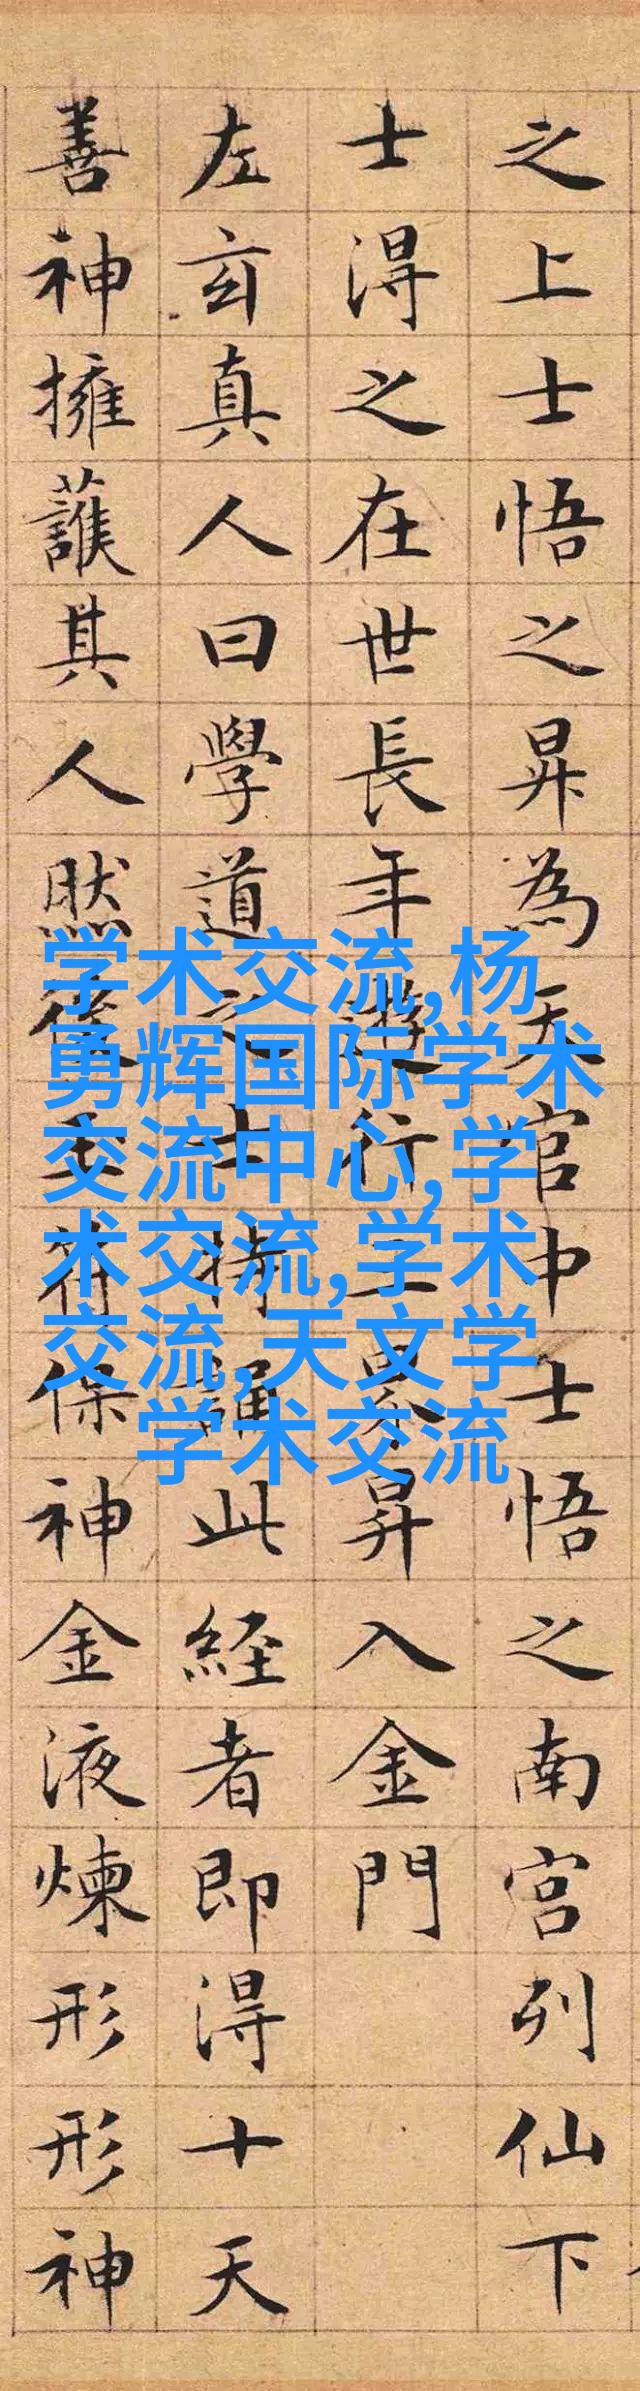 之上士悟之昇為天官中士悟之南宮列仙下
士得之在世長年遊行三界昇入金門
左玄真人曰學道之士持誦此經者即得十天
善神擁護其人然後玉符保神金液煉形形神
学术交流,杨
勇辉国际学术
交流中心,学
术交流,学术
交流,天文学
学术交流